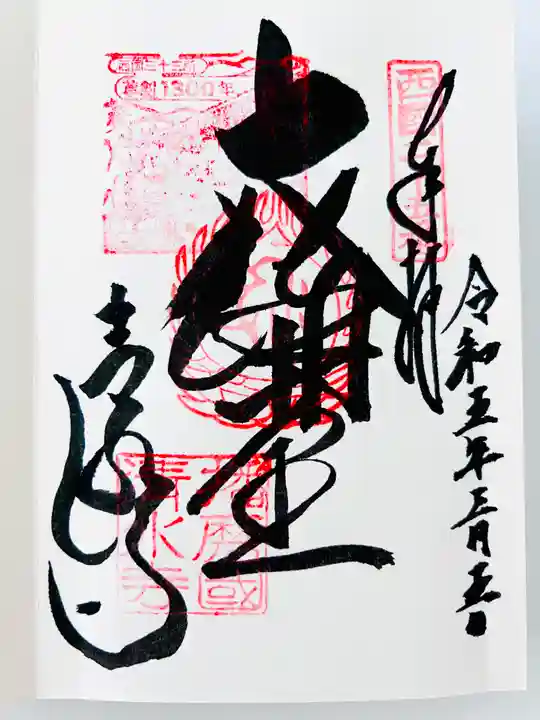 西国二十五番
奉拝
令和五年三月五日
大講堂
西国三十三所
草創1300年
清水寺
播磨國
清水寺